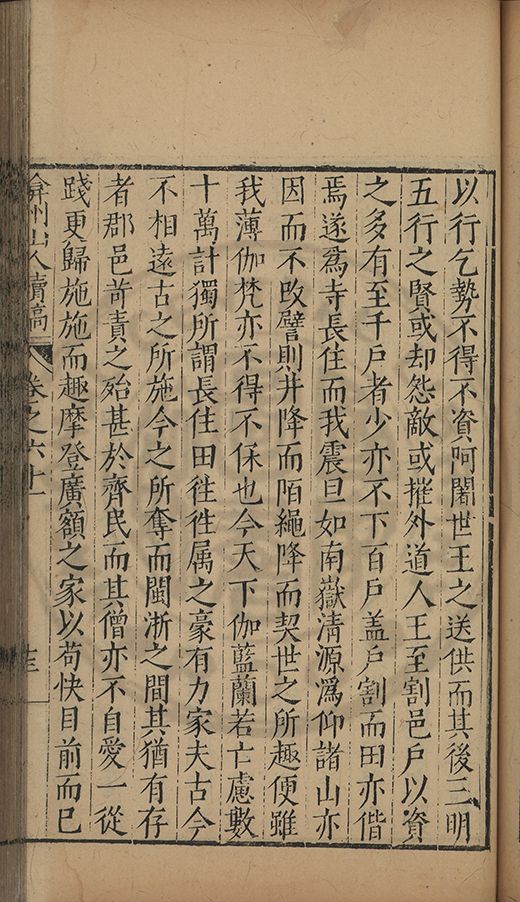 以行乞勢不得不資阿闍世王之送供而其後三明
五行之賢或却怨敵或摧外道人王至割邑戶以資
之多有至千戶者少亦不下百戶盖戶割而田亦偕
焉遂爲寺長住而我震旦如南嶽淸源潙仰諸山亦
因而不改譬則井降而陌繩降而契世之所趣便雖
我薄伽梵亦不得不俫也今天下伽藍蘭若亡慮數
十萬計獨所謂長住田徃徃属之豪有力家夫古今
不相遠古之所施今之所奪而閩浙之間其猶有存
者郡邑苛責之殆甚於齊民而其僧亦不自愛一從
踐更歸施施而趣摩登廣額之家以苟快目前而已
弇州山人續稿 卷之六十一 十三